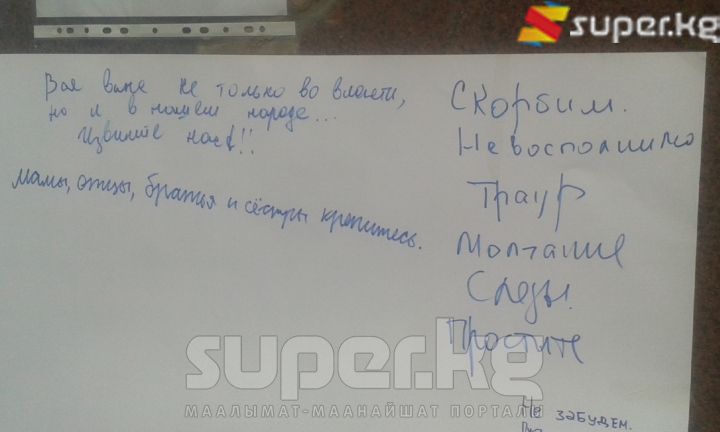 super.kg
Вся вина не только во власти,
но и в нашем народе...
Извините нас!!
Мамы, отцы, братья и сёстры крепитесь.
Скорбим.
Невосполнимо
Траур
Молчание
Следы.
Простите
super.kg
МААЛЫМАТ-МААНАЙШАТ ПОРТАЛЫ
Не забудем.